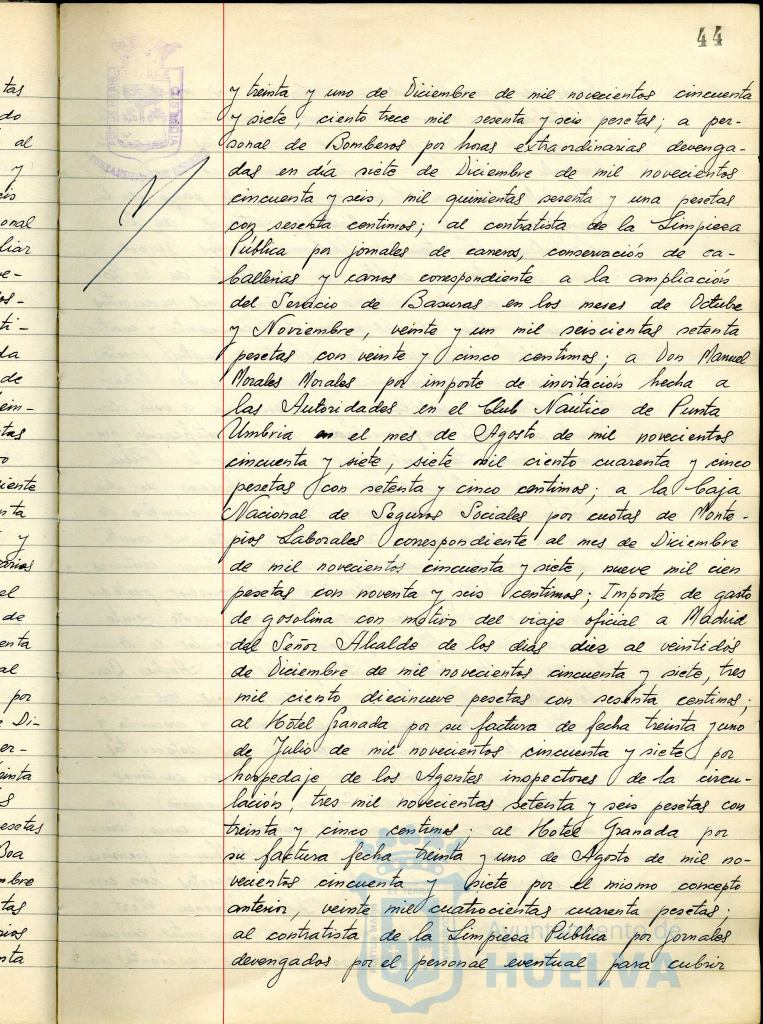 44
y treinta y uno de Diciembre de mil novecientos cincuenta
y siete, ciento trece mil sesenta y seis pesetas; a per-
sonal de Bomberos por horas extraordinarias devenga-
das en día siete de Diciembre de mil novecientos
cincuenta y seis, mil quinientas sesenta y una pesetas
con sesenta centimos; al contratista de la Limpieza
Pública por jornales de carreros, conservación de ca-
ballerias y carros correspondiente a la ampliación
del Servicio de Basuras en los meses de Octubre
y Noviembre, veinte y un mil seiscientas setenta
pesetas con veinte y cinco centimos; a Don Manuel
Morales Morales por importe de invitación hecha a
las Autoridades en el Club Naútico de Punta
Umbria en el mes de Agosto de mil novecientos
cincuenta y siete, siete mil ciento cuarenta y cinco
pesetas con setenta y cinco centimos; a la Caja
Nacional de Seguros Sociales por cuotas de Monte-
pios Laborales correspondiente al mes de Diciembre
de mil novecientos cincuenta y siete, nueve mil cien
pesetas con noventa y seis centimos; Importe de gasto
de gasolina con motivo del viaje oficial a Madrid
del Señor Alcalde de los dias diez al veintidos
de Diciembre de mil novecientos cincuenta y siete, tres
mil ciento diecinueve pesetas con sesenta centimos;
al Hotel Granada por su factura de fecha treinta y uno
de Julio de mil novecientos cincuenta y siete por
hospedaje de los Agentes inspectores de la circu-
lación, tres mil novecientas setenta y seis pesetas con
treinta y cinco centimos; al Hotel Granada por
su factura fecha treinta y uno de Agosto de mil no-
vecientos cincuenta y siete por el mismo concepto
anterior, veinte mil cuatrocientas cuarenta pesetas;
al contratista de la Limpieza Pública por jornales
devengados por el personal eventual para cubrir
Ayuntamiento de
HUELVA